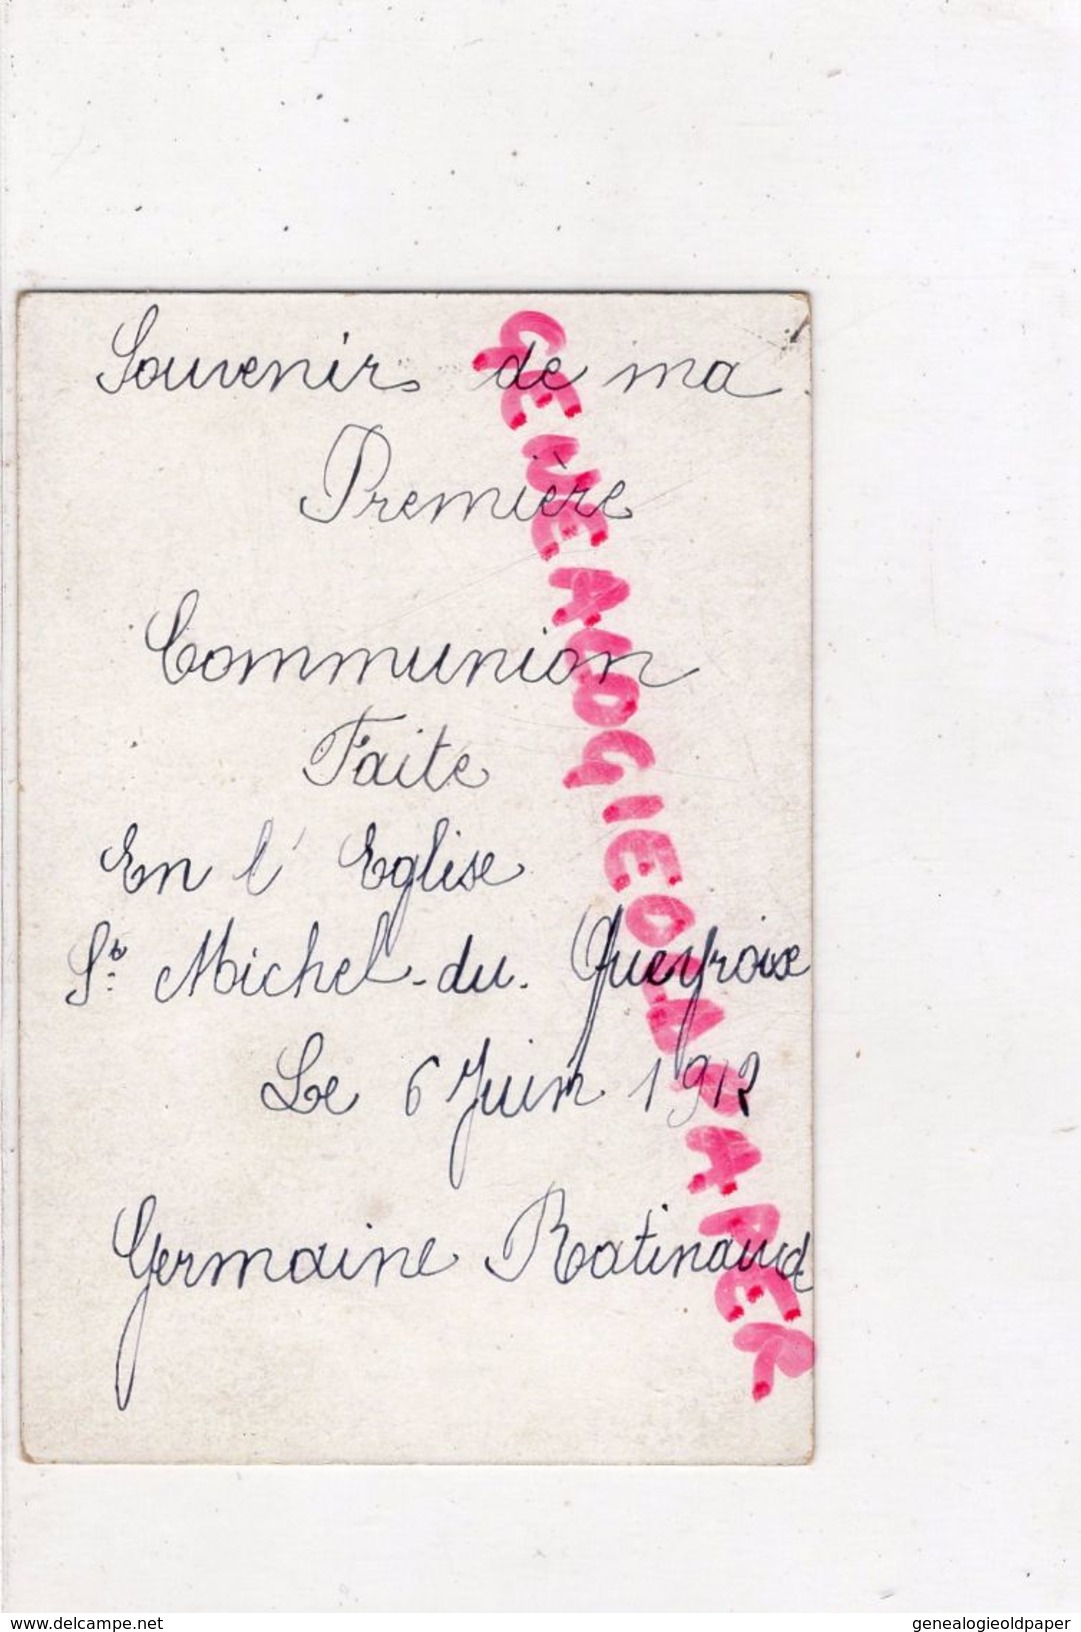 Souvenir de ma
Première
Communion
Faite
En l' Eglise
St Michel-du-Queyroix
Le 6 Juin 1912
Germaine Ratinaud
GENEALOGIEOLDPAPER
delcampe.net
genealogieoldpaper